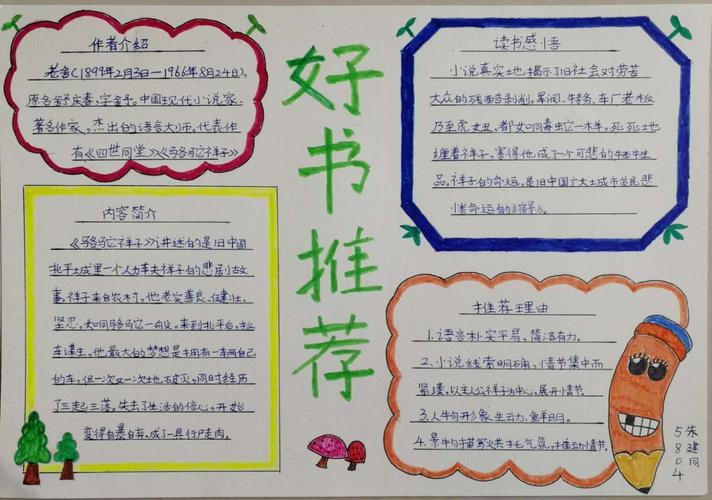 好书推荐
作者介绍
老舍(1899年2月3日—1966年8月24日),
原名舒庆春,字舍予。中国现代小说家、
著名作家,杰出的语言大师。代表作
有《四世同堂》《骆驼祥子》
内容简介
《骆驼祥子》讲述的是旧中国
北平城里一个人力车夫祥子的悲剧故
事。祥子来自农村,他老实善良、健壮、
坚忍,如同骆驼一般。来到北平后,拉
车谋生,他最大的梦想是拥有一车两自己
的车,但一次又一次地破灭,同时经历
了三起三落,失去了生活的信心,开始
变得自暴自弃,成了一具行尸走肉。
读书感悟
小说真实地揭示了旧社会对劳苦
大众的残酷剥削。军阀、特务、车厂老板
乃至虎妞,都如同毒蛇一样,死死地
缠着祥子,害得他成了一个可悲的牺牲
品。祥子的命运,是旧中国广大城市贫民悲
惨命运的缩影。
推荐理由
1.语言朴实平易、简洁有力。
2.小说线索明确,情节集中而
紧凑,以主人公祥子为中心,展开情节。
3.人物形象生动、鲜明。
4.景物描写烘托气氛,推动情节。
朱建同
5804